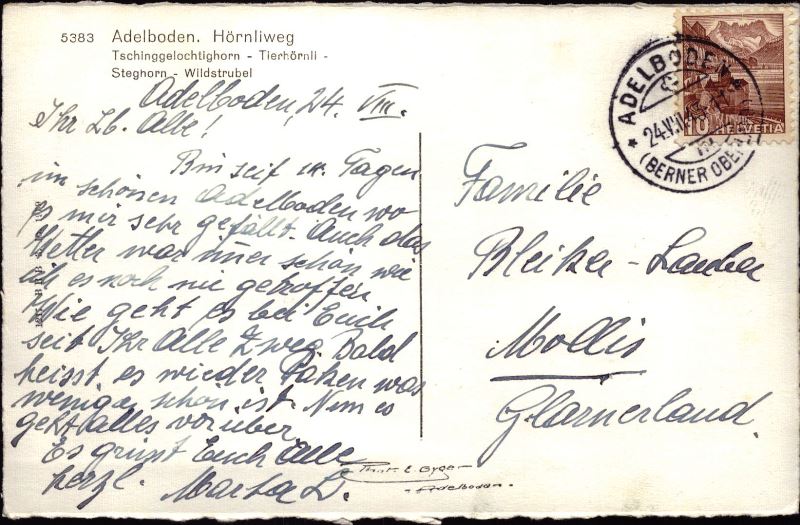 5383 Adelboden. Hörnliweg
Tschinggelochtighorn - Tierhörnli -
Steghorn - Wildstrubel
Adelboden, 24. VIII.
Ihr Lb. Alle!
Bin seit 14. Tagen
im schönen Adelboden wo
es mir sehr gefällt. Auch das
Wetter war immer schön wie
ich es noch nie getroffen
Wie geht es bei Euch
seit Ihr Alle zweg. Bald
heisst es wieder Paken was
weniger schön ist. Nun es
geht alles vorüber
Es grüsst Euch Alle
herzl. Martha D.
Familie
Bleiker-Lauber
Mollis
Glarnerland.
Phot. E. Gyger
- Adelboden -
ADELBODEN
(BERNER OBERLAND)
10 HELVETIA